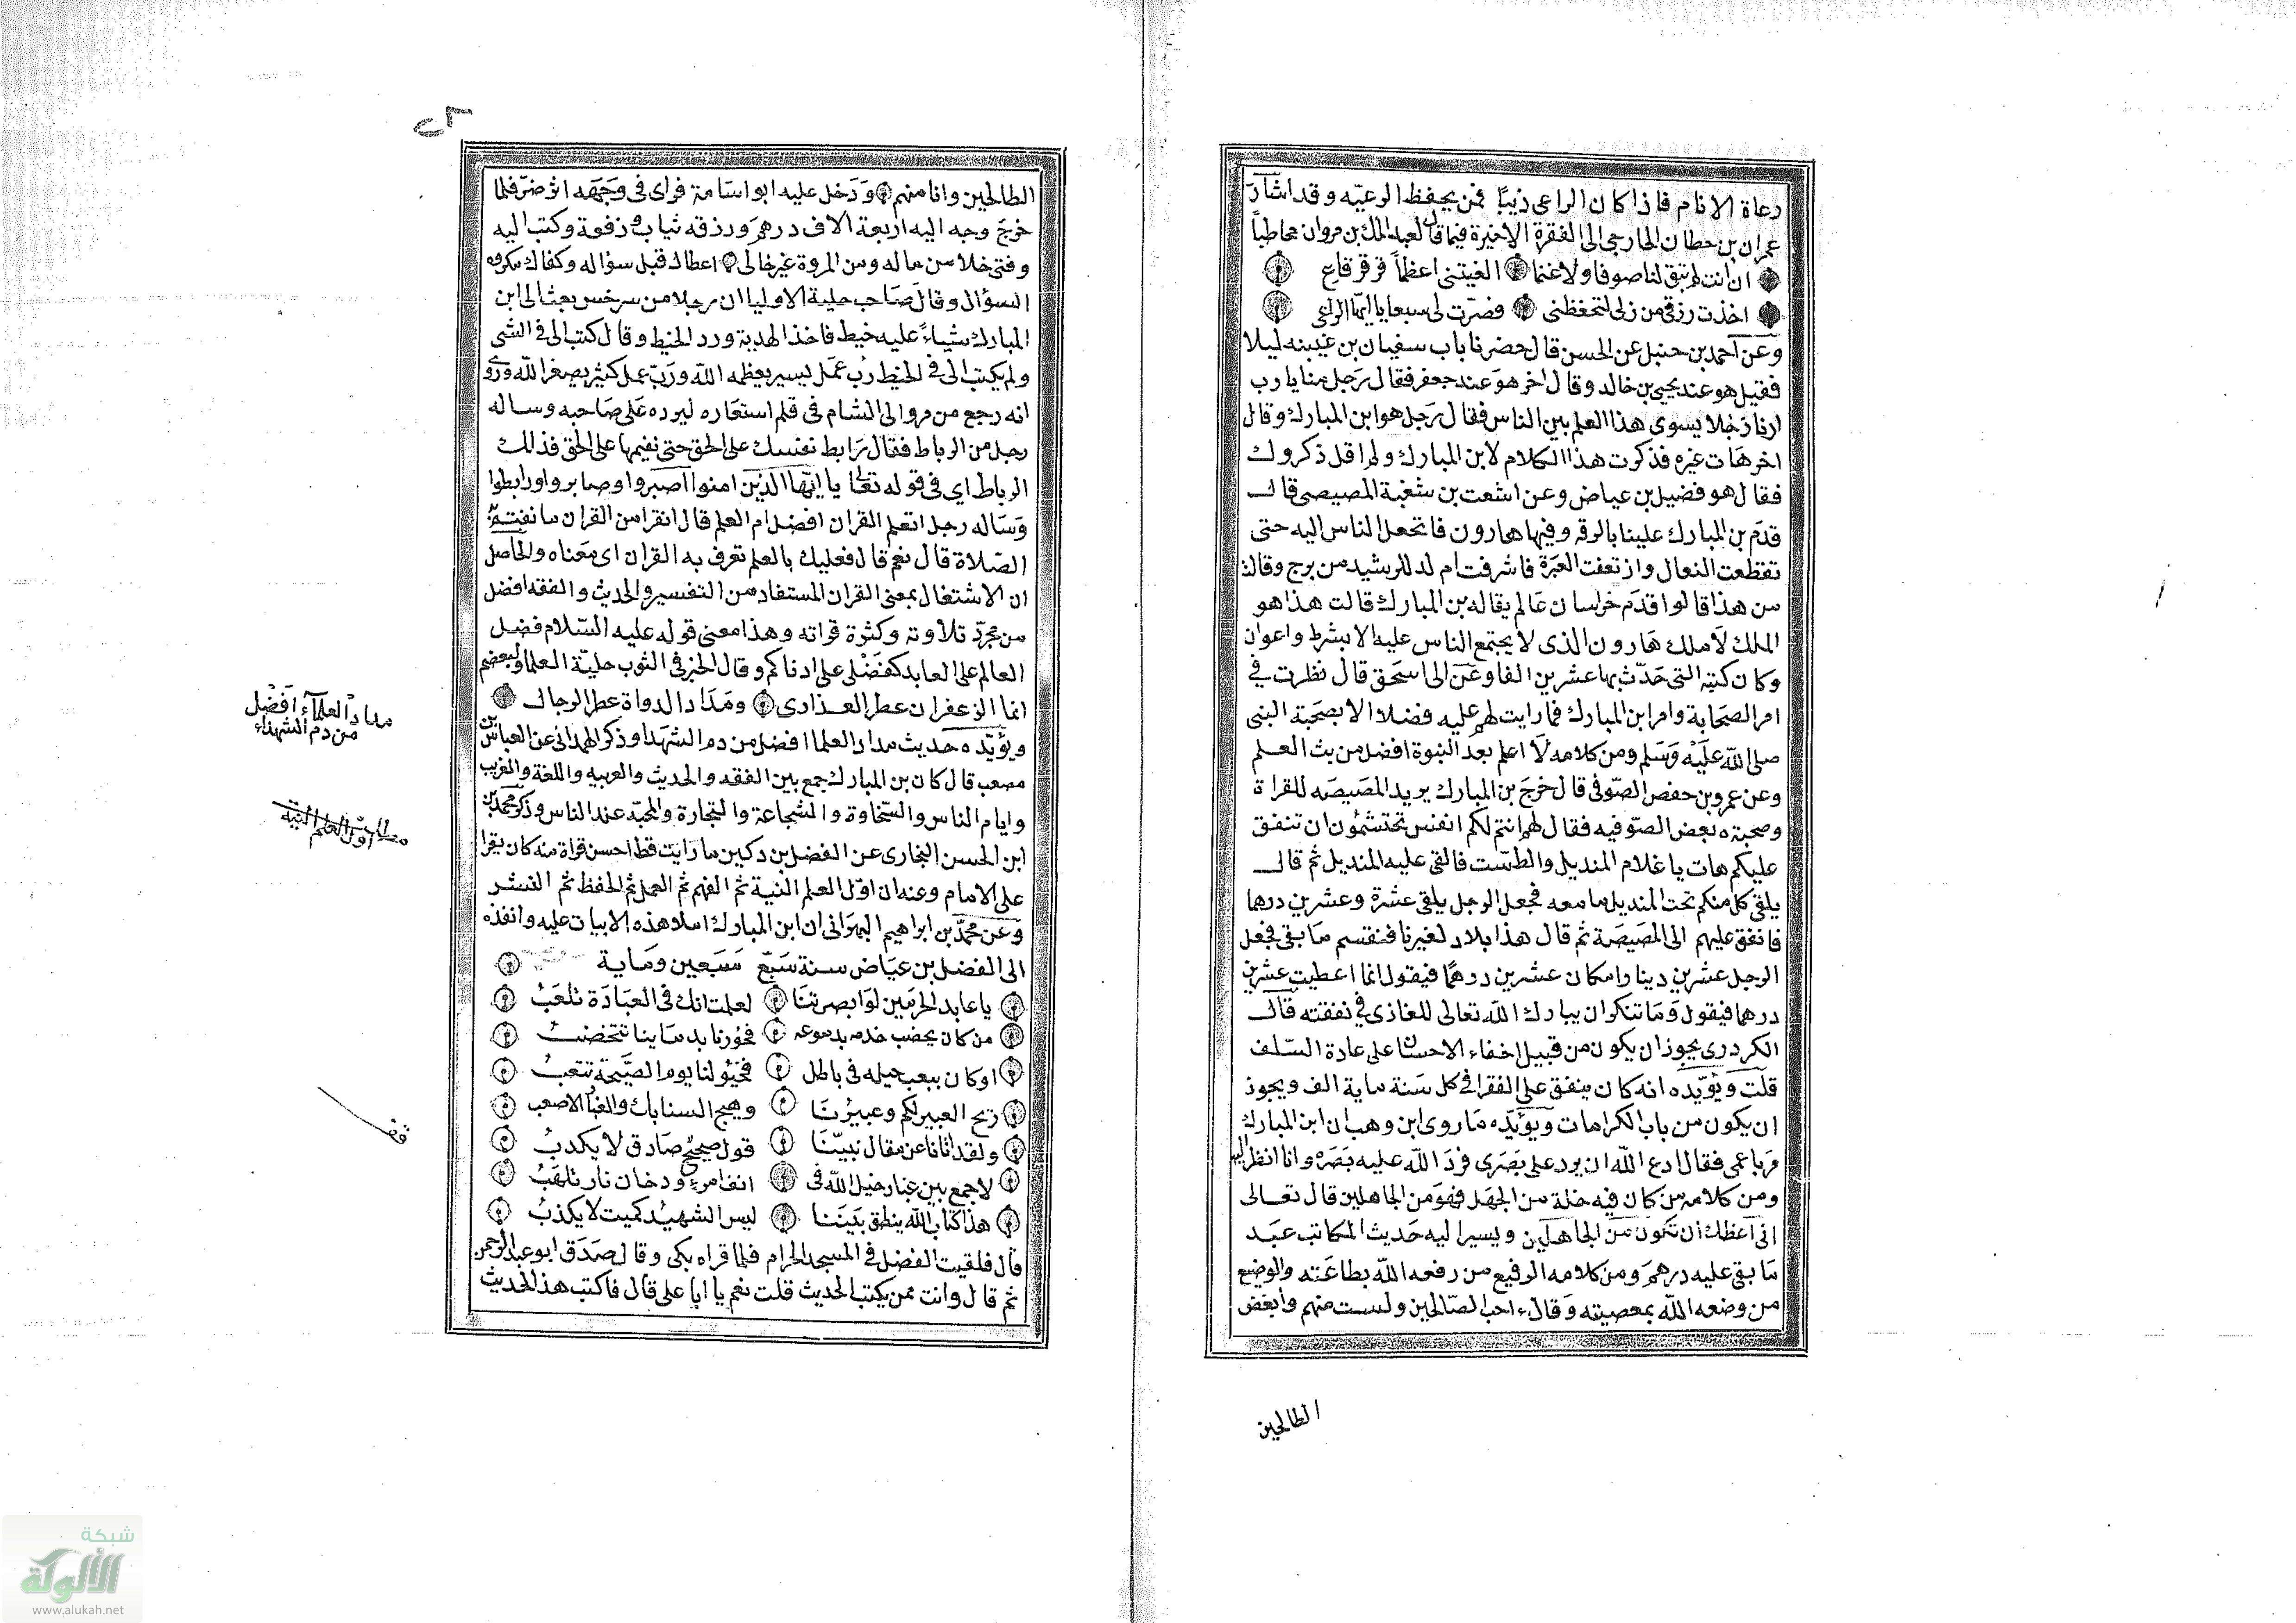 رعاة الانام فاذا كان الراعى ذيبًا فمن يحفظ الرعيّه وقد اشار
عمران بن حطان الخارجى الى الفقرة الاخيرة فيما قال لعبد الملك بن مروان مخاطباً
ان انت لم تبق لنا صوفا ولا غنما الفيتنى اعظماً فى قرقر قاع
اخذت رزقى من زلى لتحفظنى فصرت لى سبعا يا ايها الراعى
وعن احمد بن حنبل عن الحسن قال حضرنا باب سفيان بن عيينه ليلا
فقيل هو عند يحيى بن خالد وقال اخر هو عند جعفر فقال رجل منا يا رب
ارنا رجلا يسوى هذا العلم بين الناس فقال رجل هو ابن المبارك وقال
اخر هات غيره فذكرت هذا الكلام لابن المبارك ولم اقل ذكروك
فقال هو فضيل بن عياض وعن اشعت بن شعبة المصيصى قال
قدم بن المبارك علينا بالرقه وفيها هارون فانجعل الناس اليه حتى
تقطعت النعال وارتعفت الغبرة فاشرفت ام لد للرشيد من برج وقالت
من هذا قالوا قدم خراسان عالم يقاله بن المبارك قالت هذا هو
الملك لا ملك هارون الذى لا يجتمع الناس عليه الا بشرط واعوان
وكان كتبه التى حدّث بها عشرين الفا وعن الى اسحق قال نظرت في
امر الصحابة وامر ابن المبارك فما رايت لهم عليه فضلا الا بصحبة النبى
صلى الله عليه وسلم ومن كلامه لا اعلم بعد النبوة افضل من بث العلم
وعن عمرو بن حفص الصّوفى قال خرج بن المبارك يريد المصيصه للقراة
وصحبته بعض الصّوفيه فقال لهم انتم لكم انفس تحتشمون ان تنفق
عليكم هات يا غلام المنديل والطشت فالقى عليه المنديل ثم قال
يلقى كل منكم تحت المنديل ما معه فجعل الرجل يلقى عشرة وعشرين درهما
فانفق عليهم الى المصيصة ثم قال هذا بلاد لغيرنا فنقتسم ما بقى فجعل
الرجل عشرين دينارا مكان عشرين درهمًا فيقول انما اعطيت عشرين
درهما فيقول وما تنكر ان يبارك الله تعالى للغازى في نفقته قال
الكردرى يجوز ان يكون من قبيل اخفاء الاحسان على عادة السّلف
قلت ويؤيّده انه كان ينفق على الفقرا في كل سنة ماية الف ويجوز
ان يكون من باب الكرامات ويؤيّده ما روى ابن وهب ان ابن المبارك
مر باعمى فقال ادع الله ان يرد على بصرى فرد الله عليه بصره وانا انظر اليه
ومن كلامه من كان فيه خلة من الجهل فهو من الجاهلين قال تعالى
انى اعظك ان تكون من الجاهلين ويسير اليه حديث المكاتب عبد
ما بقى عليه درهم ومن كلامه الرفيع من رفعه الله بطاعته والوضيع
من وضعه الله بمعصيته وقال احب الصّالحين ولست منهم وابغض
الطالحين
٢٣
الطالحين وانا منهم ودخل عليه ابو اسامة فراى فى وجهه اثر ضرّ فلما
خرج وجه اليه اربعة الاف درهم ورزقه ثياب ورفعة وكتب اليه
وفتى خلا من ماله ومن المروة غير خالى اعطاك قبل سؤاله وكفاك مكروه
السؤال وقال صاحب حلية الاوليا ان رجلا من سرخس بعث الى ابن
المبارك شياءً عليه خيط فاخذ الهدية ورد الخيط وقال كتب الى فى الشى
ولم يكتب الى فى الخيط رب عمل يسير يعظمه الله ورب عمل كثير يصغر الله وروى
انه رجع من مرو الى الشام فى قلم استعاره ليرده على صاحبه وساله
رجل من الرباط فقال رابط نفسك على الحق حتى نقيمها على الحق فذلك
الرباط اى فى قوله تعالى يا ايها الذين امنوا اصبروا وصابروا ورابطوا
وساله رجل اتعلم القران افضل ام العلم قال اتقرا من القران ما تقيم
الصّلاة قال نعم قال فعليك بالعلم تعرف به القران اى معناه والحاصل
ان الاشتغال بمعنى القران المستفاد من التفسير والحديث والفقه افضل
من مجرّد تلاوته وكثرة قراته وهذا معنى قوله عليه السّلام فضل
العالم على العابد كفضلى على ادناكم وقال الحبر فى الثوب حلية العلما ولبعضهم
انما الزعفران عطر العذارى ومداد الدواة عطر الرجال
ويؤيّده حديث مداد العلما افضل من دم الشهدا وذكر الهمدانى عن العباس بن
مصعب قال كان بن المبارك جمع بين الفقه والحديث والعربيه واللغة والغريب
وايام الناس والسّخاوة والشجاعة والتجارة والمحبّة عند الناس وذكر محمد بن
ابن الحسن البخارى عن الفضل بن دكين ما رايت قط احسن قراة منه كان يقرا
على الامام وعنه ان اوّل العلم النية ثم الفهم ثم العمل ثم الحفظ ثم النشر
وعن محمّد بن ابراهيم البهرانى ان ابن المبارك املا هذه الابيات عليه وانفذه
الى الفضل بن عياض سنة سبع سبعين وماية
يا عابد الحرمين لو ابصرتنا لعلمت انك فى العبادة تلعب
من كان يخضب خده بدموعه فنحورنا بدماينا تتخضب
او كان يبعب خيله فى باطل فخيولنا يوم الصّبيحة تتعب
ريح العبير لكم وعبيرنا وهج السنابك والغبار الاصعب
ولقد اتانا عن مقال نبيّنا قول صحيح صادق لا يكذب
لا جمع بين غبار خيل الله فى انف امرئ ودخان نار تلهب
هذا كتاب الله ينطق بيننا ليس الشهيد كميت لا يكذب
قال فلقيت الفضل فى المسجد الحرام فلما قراه بكى وقال صدق ابو عبد الرحمن
ثم قال وانت ممن يكتب الحديث قلت نعم يا ابا على قال فاكتب هذا الحديث
مداد العلماء افضل
من دم الشهداء
مطلب
اول العلم النية
قف
شبكة
الألوكة
www.alukah.net